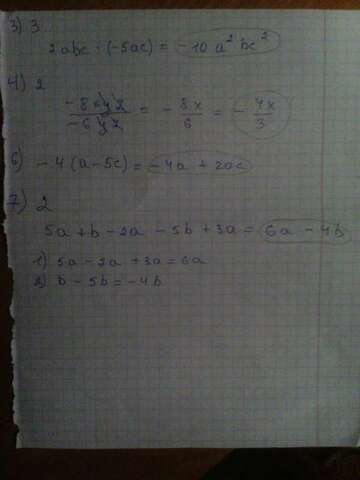 3) 3
2abc · (-5ac) = -10 a² bc²
4) 2
-8xyz / -6yz = - 8x / 6 = - 4x / 3
6) -4 (a-5c) = -4a + 20c
7) 2
5a + b - 2a - 5b + 3a = 6a - 4b
1) 5a - 2a + 3a = 6a
2) b - 5b = -4b